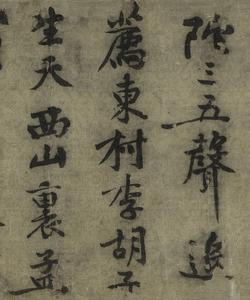 陁三五聲遙
薦東村李胡子
生天西山裏孟